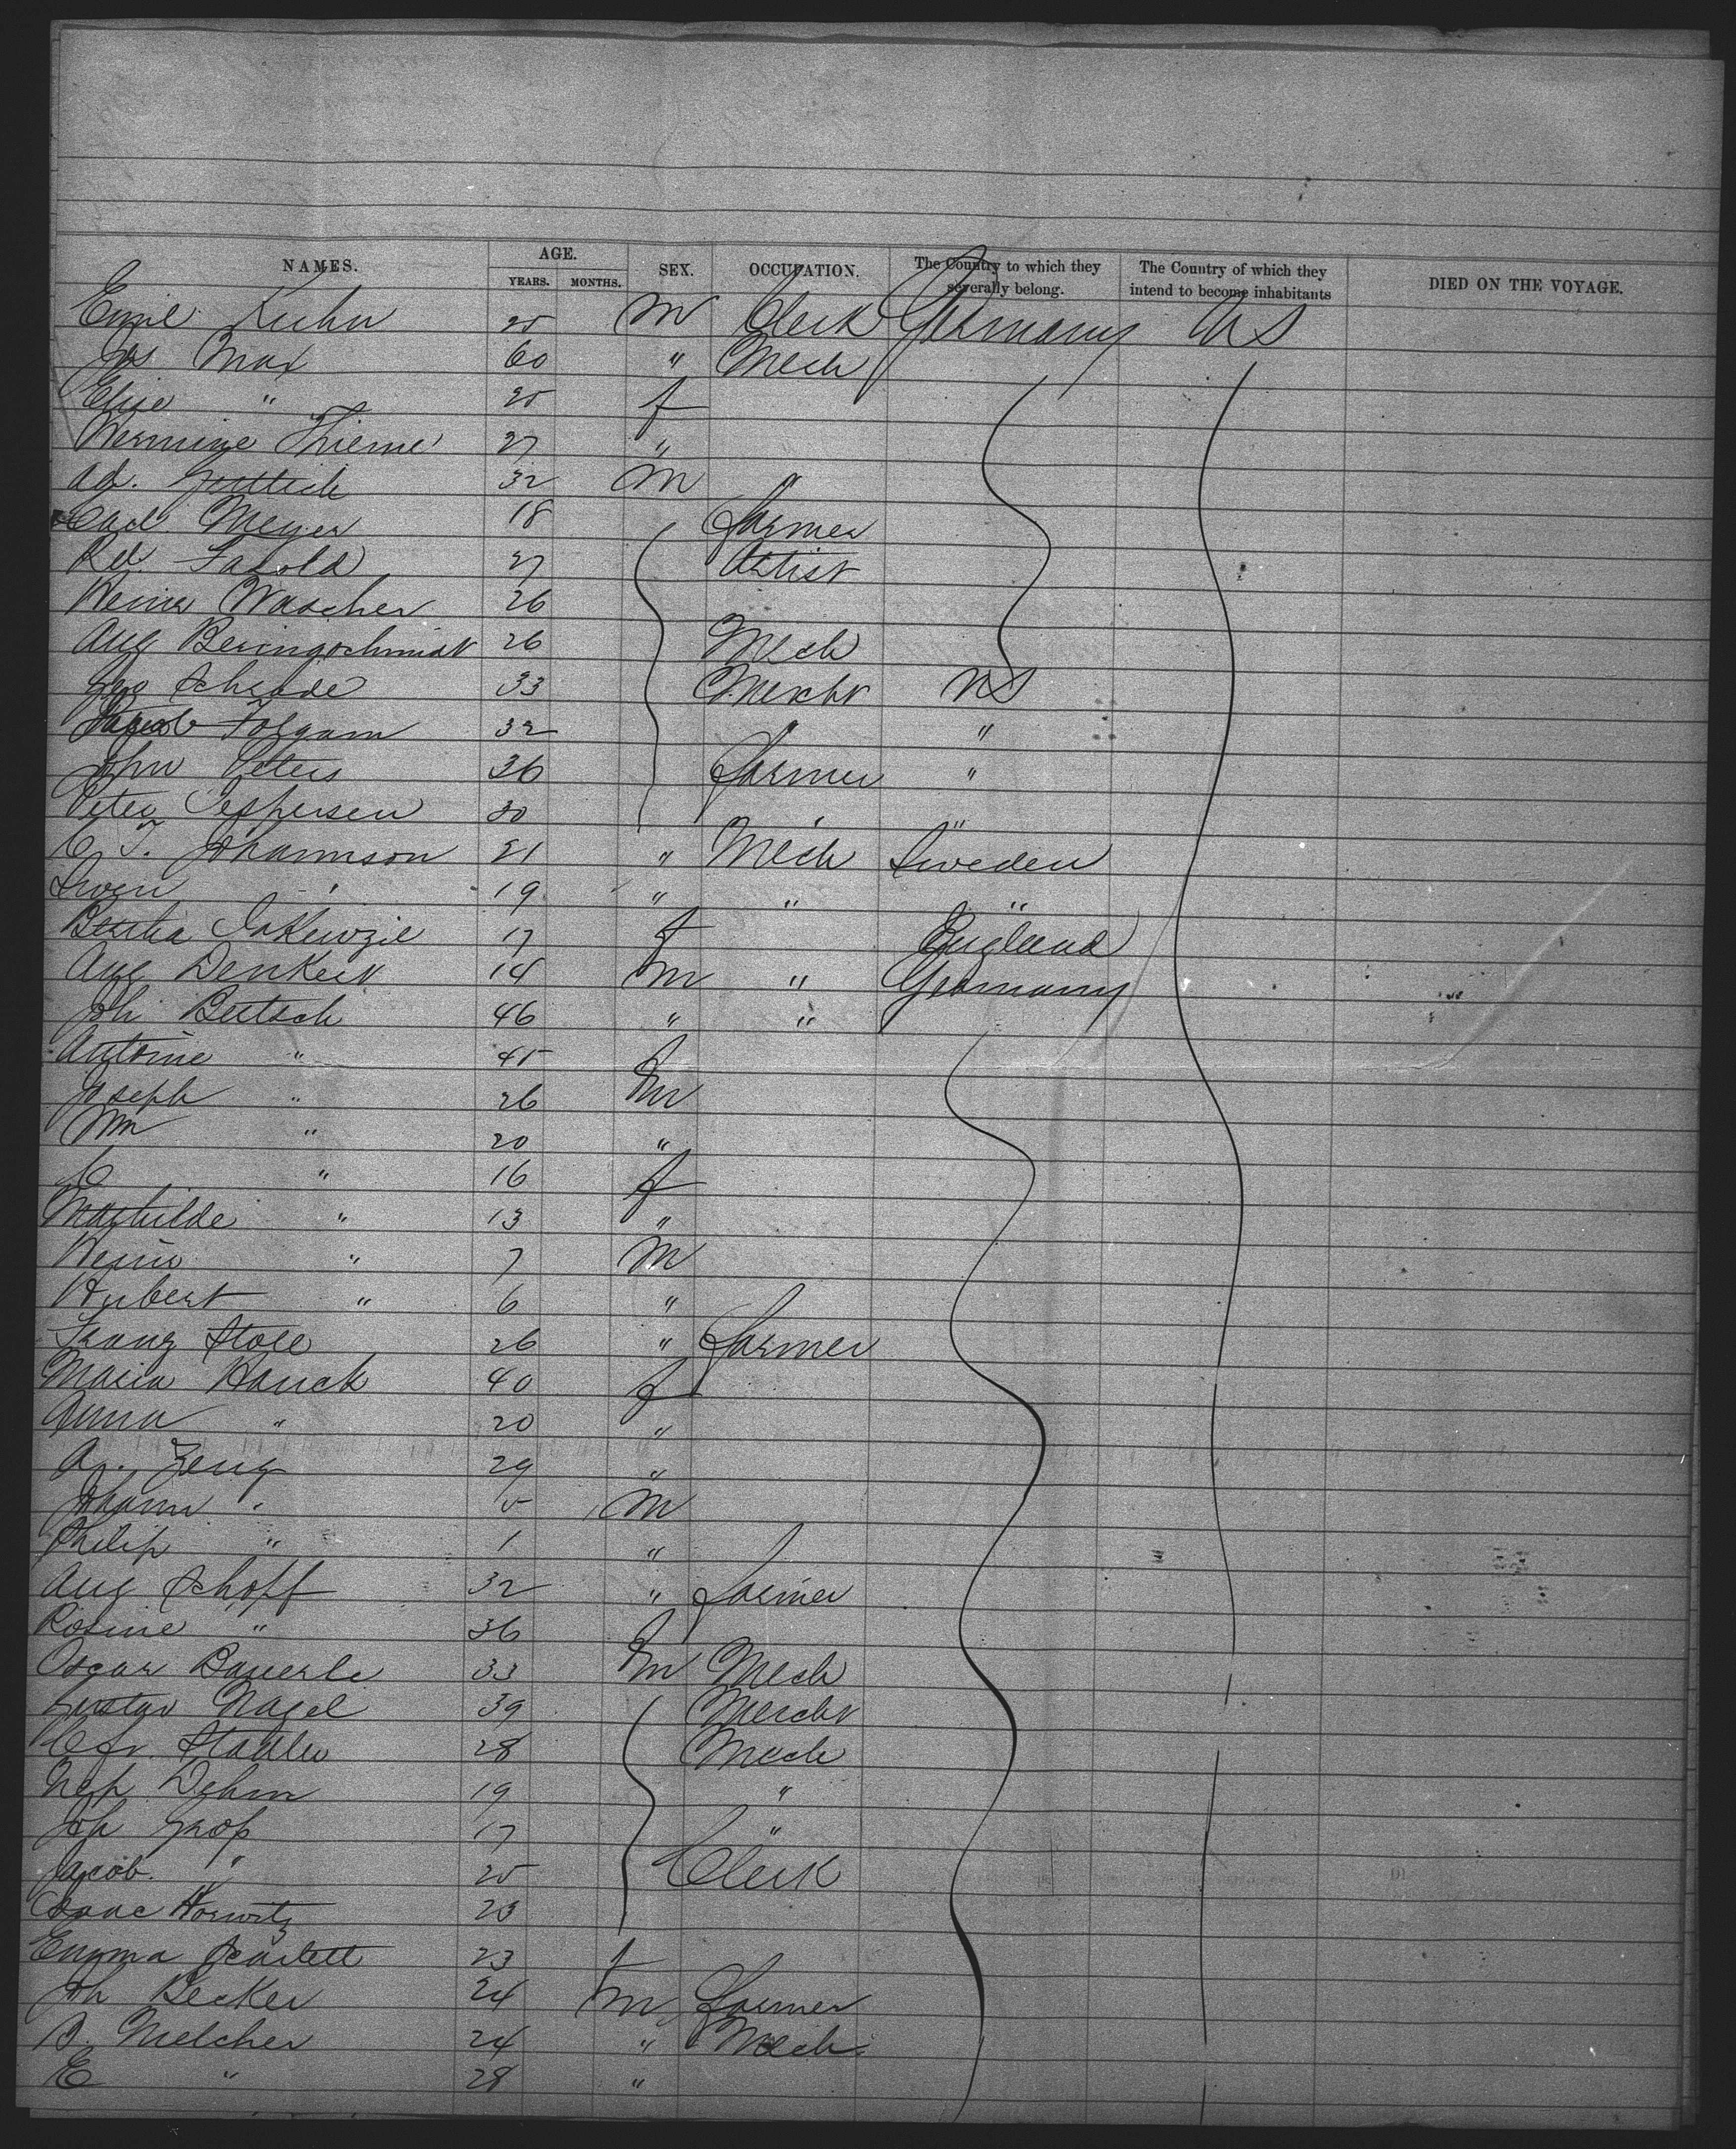 NAMES. AGE. SEX. OCCUPATION. The Country to which they severally belong. The Country of which they intend to become inhabitants DIED ON THE VOYAGE.
YEARS. MONTHS.
Emil Kuhn 25 M Clerk Germany US
Jos Max 60 " Mech
Elise " 25 f
Hermine Thieme 27 "
Ad. 32 M "
Carl Meyer 18 Farmer
Rd. 27 Artist
Heinr Wascher 26
Aug Beringschmidt 26 Mech
Geo Scheade 33 Mercht US
Jacob Folgam 32 " "
John Peters 36 Farmer "
Peter Jephersen 30 " "
C. T. Johannson 21 " Mech Sweden
Swen " 19 " " "
Bertha 17 f England
Aug Denkert 14 M " Germany
Joh Bertsch 46 " "
Antoine " 45 f
Joseph " 26 M
Wm " 20 "
C " 16 f
Mathilde " 13 "
Heinr " 7 M
Hubert " 6 "
Franz Stoll 26 " Farmer
Maria Hauck 40 f
Anna " 20 "
A. Zeng 29 "
Johann " 5 M
Philip " 1 "
Aug Schopf 32 " Farmer
Rosine " 36 f
Oscar Bauerle 33 M Mech
Gustav Nagel 39 Mercht
Cfr. Stahler 28 Mech
Nep Dehm 19 "
Joh Grop 17 "
Jacob. " 25 Clerk
Isaac Horwitz 23
Emma Scarlett 23 f
Joh Becker 24 M Farmer
B. Melcher 24 " Mech
E " 28 "